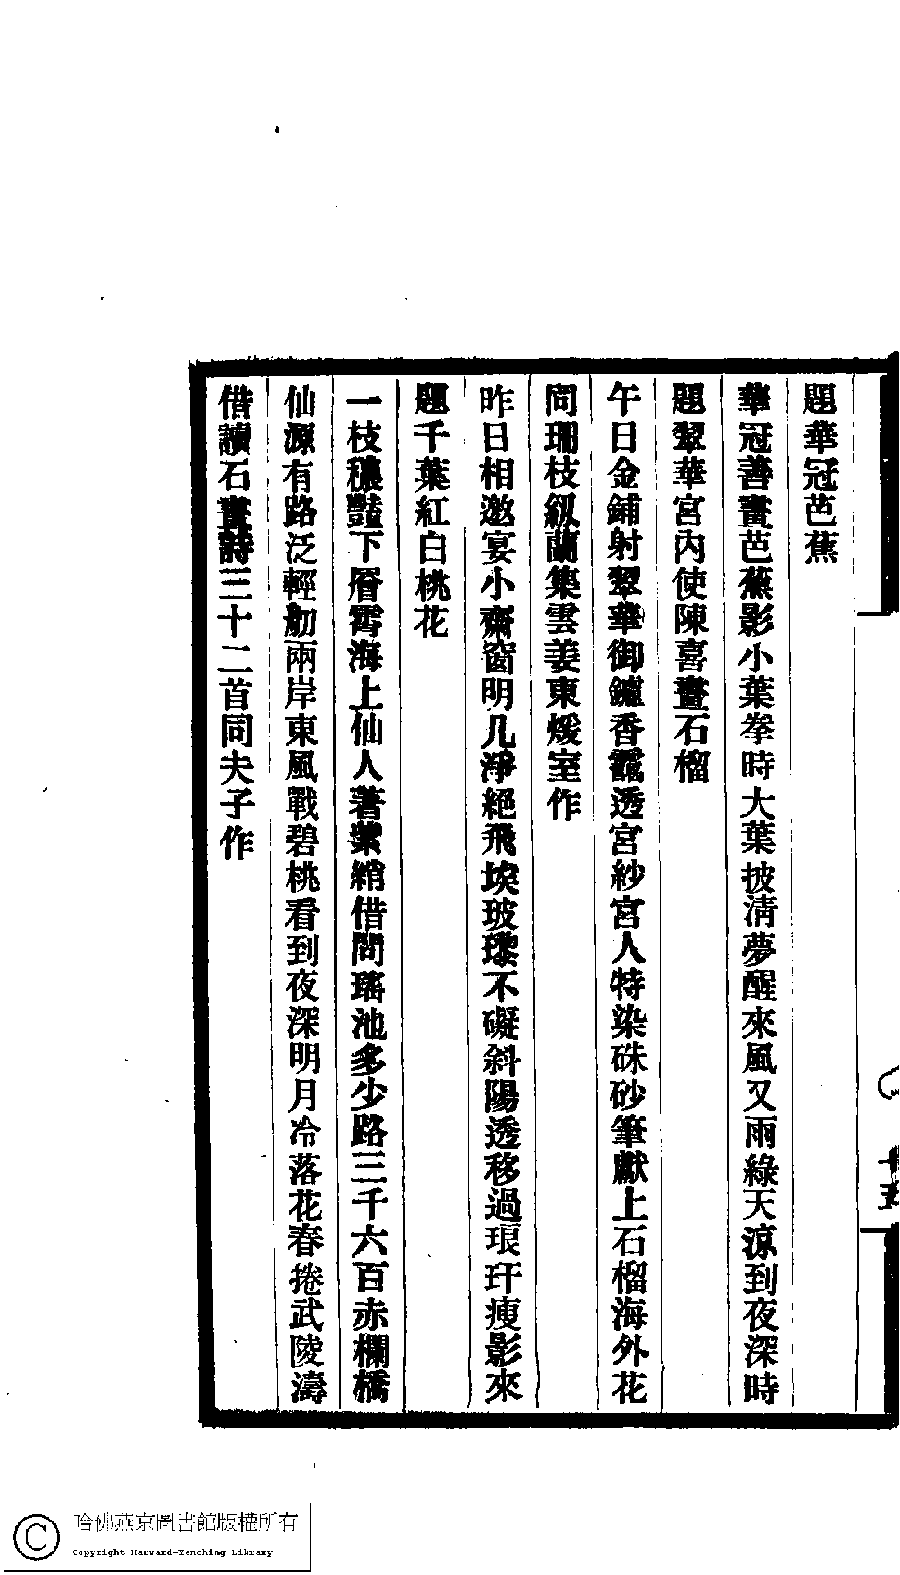 題華冠芭蕉
華冠善畫芭蕉影小葉拳時大葉披淸夢醒來風又雨綠天涼到夜深時
題翠華宮內使陳喜畫石榴
午日金鋪射翠華御鑪香靄透宮紗宮人特染硃砂筆獻上石榴海外花
同珊枝釵蘭集雲姜東煖室作
昨日相邀宴小齋窗明几淨絕飛埃玻瓈不礙斜陽透移過琅玕瘦影來
題千葉紅白桃花
一枝穠豔下層霄海上仙人著紫綃借問瑤池多少路三千六百赤欄橋
仙源有路泛輕舠兩岸東風戰碧桃看到夜深明月冷落花春捲武陵濤
借讀石畫詩三十二首同夫子作
哈佛燕京圖書館版權所有
Copyright Harvard-Yenching Library